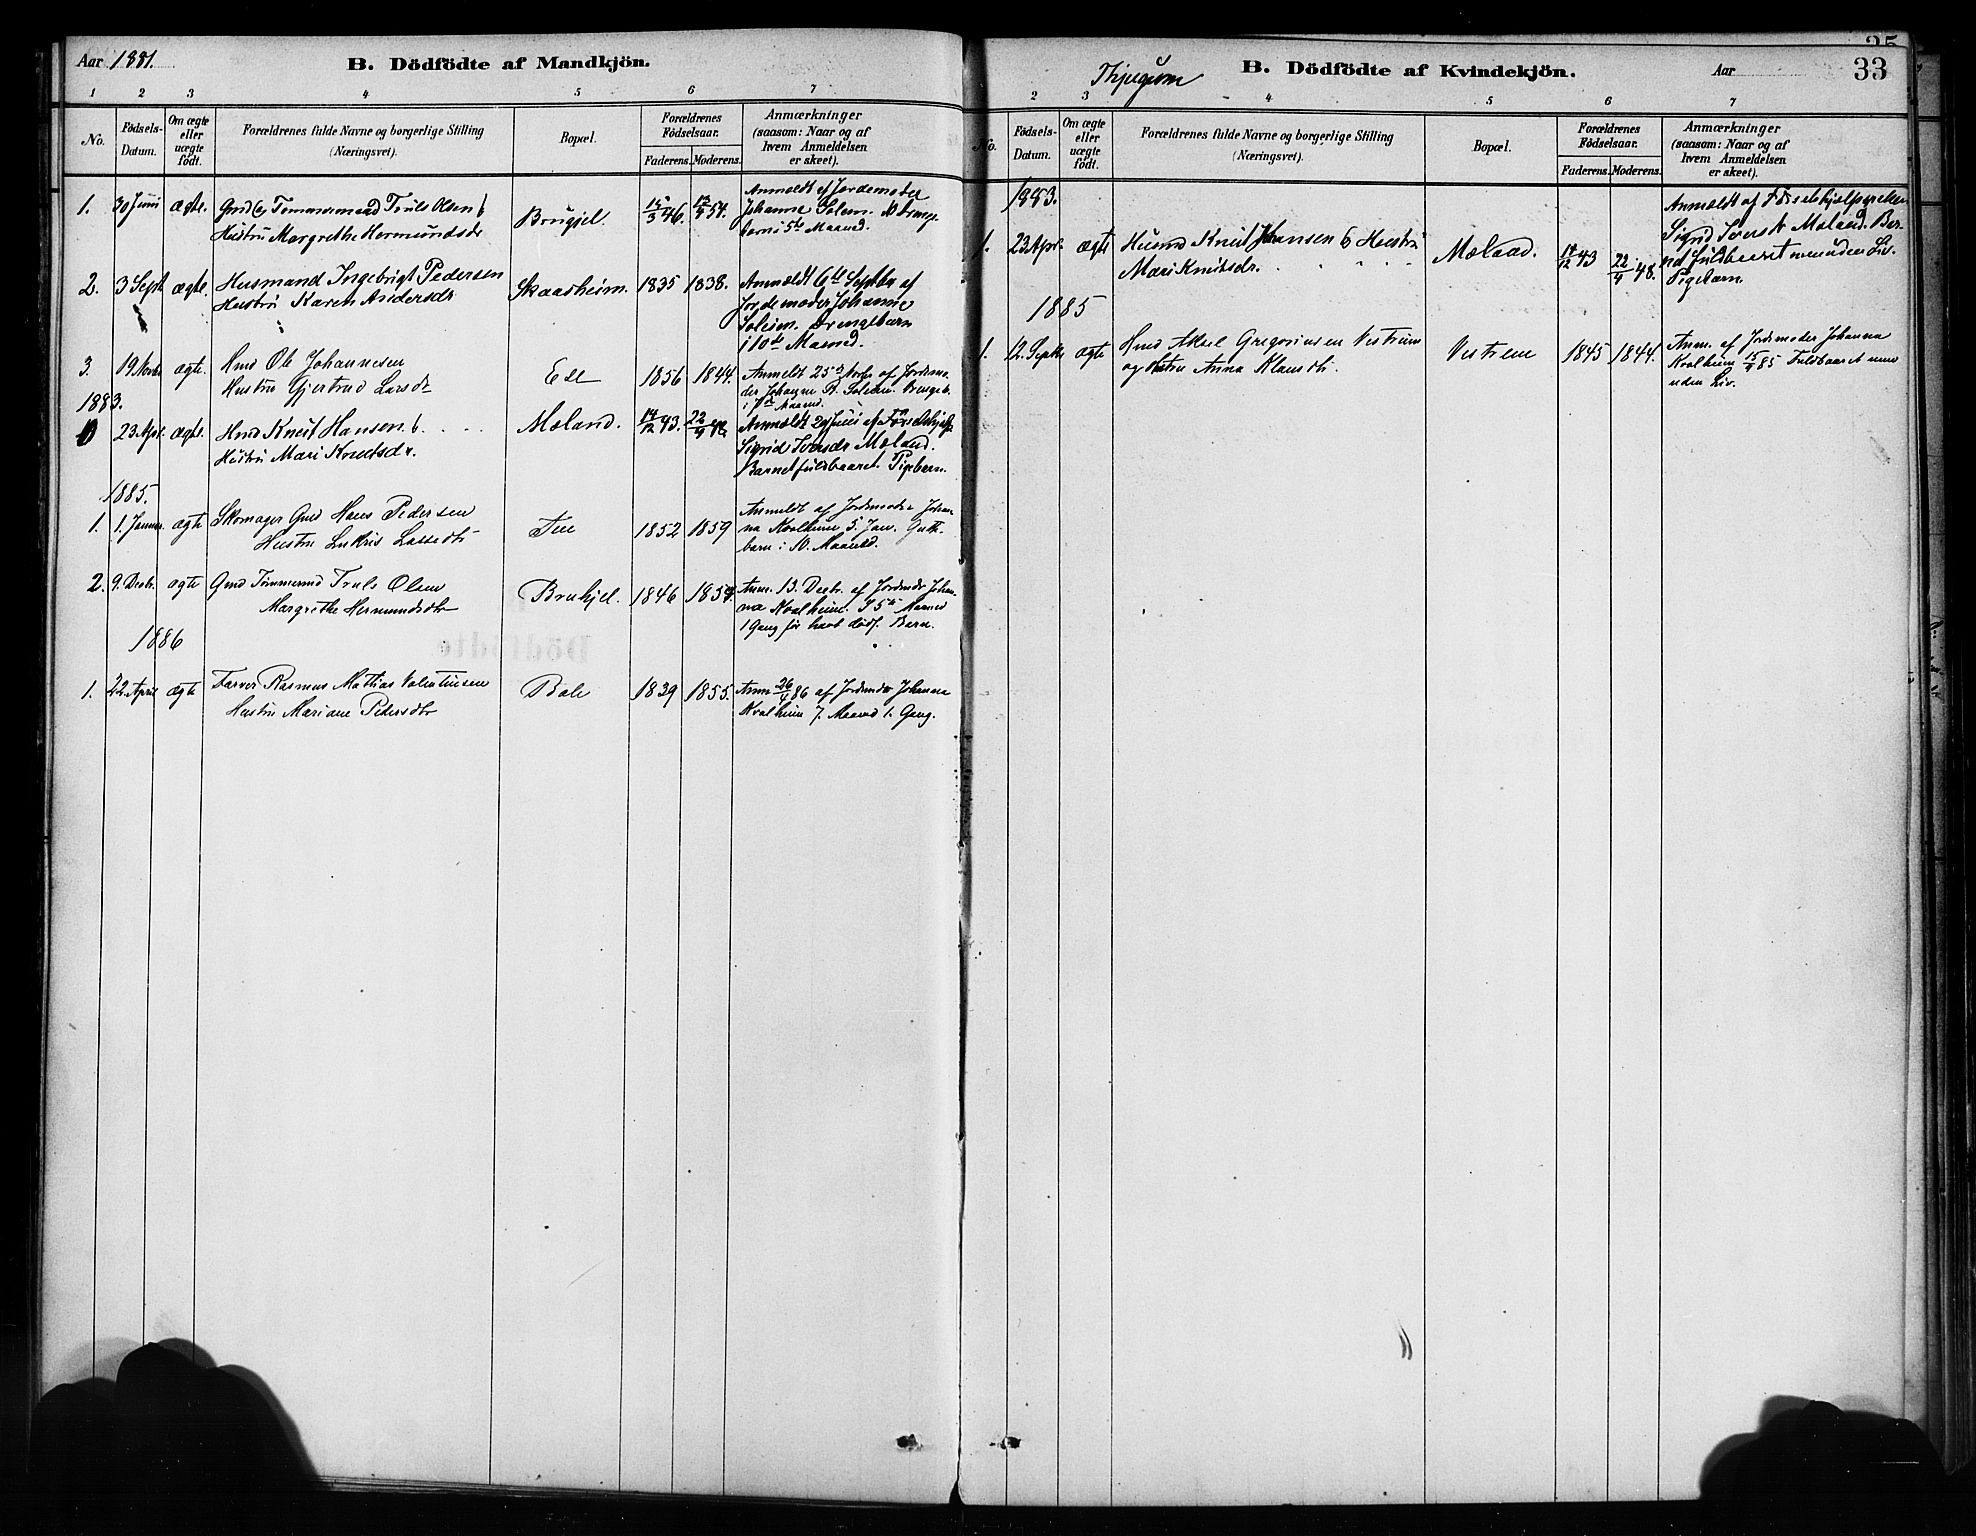 Aar 1881.
B. Dödfödte af Mandkjön.
1 2 3 4 5 6 7
No.
Födsels-Datum.
Om ægte eller uægte födt.
Forældrenes fulde Navne og borgerlige Stilling
(Næringsvei).
Bopæl.
Forældrenes Födselsaar.
Faderens. Moderens.
Anmærkninger
(saasom: Naar og af
hvem Anmeldelsen
er skeet).
1. 30 Juni ægte. Tømmermand Truls Olsen &
Hustru Margrethe Hermundsdr
46. 54.
Anmeldt af Jordemoder
Johanne Solem.
barn i 5te Maaned.
2. 3 Sept ægte. Husmand Ingebrigt Pedersen
Hustru Karen Andersdr
Skaasheim. 1835 1838.
Anmeldt 6te Septbr af
Jordemoder Johanne
Solem. Drengebarn
i 10de Maaned.
3. 19 Novbr ægte. Hmd Ole Johannesen
Hustru Gjertrud Larsdr
Ese 1856 1844.
Anmeldt 25de Novbr af Jordemo-
der Johanne Solem. Drengeb.
i 7de Maaned.
1883.
23 Apr. ægte. Hmd Knut Hansen &
Hustru Mari Knutsdr.
Mæland. 14/12 43. 22/4 48.
Anmeldt Juni af
Sigrid Iversdr Mæland.
Barnet fuldbaaret. Pigebarn.
1885.
1. 1. Januar ægte Skomager Gmd Hans Pedersen
Hustru Lassedtr
1852 1859
Anmeldt af Jordemoder Johan-
na Kvalheim 5. Jan. Gutte-
barn i 10. Maaned.
2. 9. Decbr. ægte Gmd Tømmermd Truls Olsen
Margrethe Hermundsdtr
1846 1854.
Anm. 13. Decbr. af Jordmdr Johan-
na Kvalheim. I 5te Maaned
1 Gang før havt dødf. Barn.
1886
1. 22. April ægte Farver Rasmus Mathias Valentinsen
Hustru Mariane Pedersdtr
Bale 1839 1855.
Anm 26/4 86 af Jordmdr Johanna
Kvalheim 7. Maaned 1. Gang.
Thjugum
B. Dödfödte af Kvindekjön.
Aar
33
2 3 4 5 6 7
No.
Födsels-Datum.
Om ægte eller uægte födt.
Forældrenes fulde Navne og borgerlige Stilling
(Næringsvei).
Bopæl.
Forældrenes Födselsaar.
Faderens. Moderens.
Anmærkninger
(saasom: Naar og af
hvem Anmeldelsen
er skeet).
1883.
1. 23 Apr. ægte Husmd Knut Hansen & Hustru
Mari Knutsdr.
14/12 43 22/4 48.
Anmeldt af
Sigrid Mæland. Bar-
net fuldbaaret men uden Liv.
Pigebarn.
1885
1. 12. Septbr ægte Hmd Aksel Gregoriusen Vestrem
og Hstru Anna Klausdtr.
Vestrem 1845 1844.
Anm. af Jordemoder Johanna
Kvalheim 15/9 85 Fuldbaaret men
uden Liv.